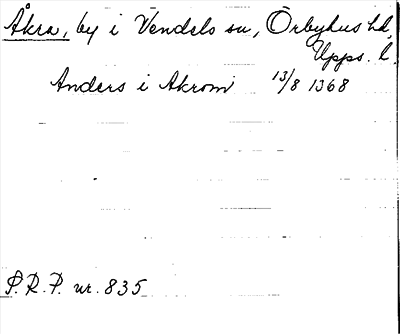 Åkra, by i Vendels sn, Örbyhus hd,
Upps. l.
Anders i Akrom 13/8 1368
P.R.P. nr. 835